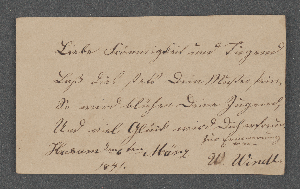 Liebe Frömmigkeit und Tugend
Laß dies stets Dein Muster sein,
So wird blühen Deine Jugend
Und viel Glück wird Dich erfreun
Zur Erinnerung
Husum den 6ten März
1891.
W. Windt.